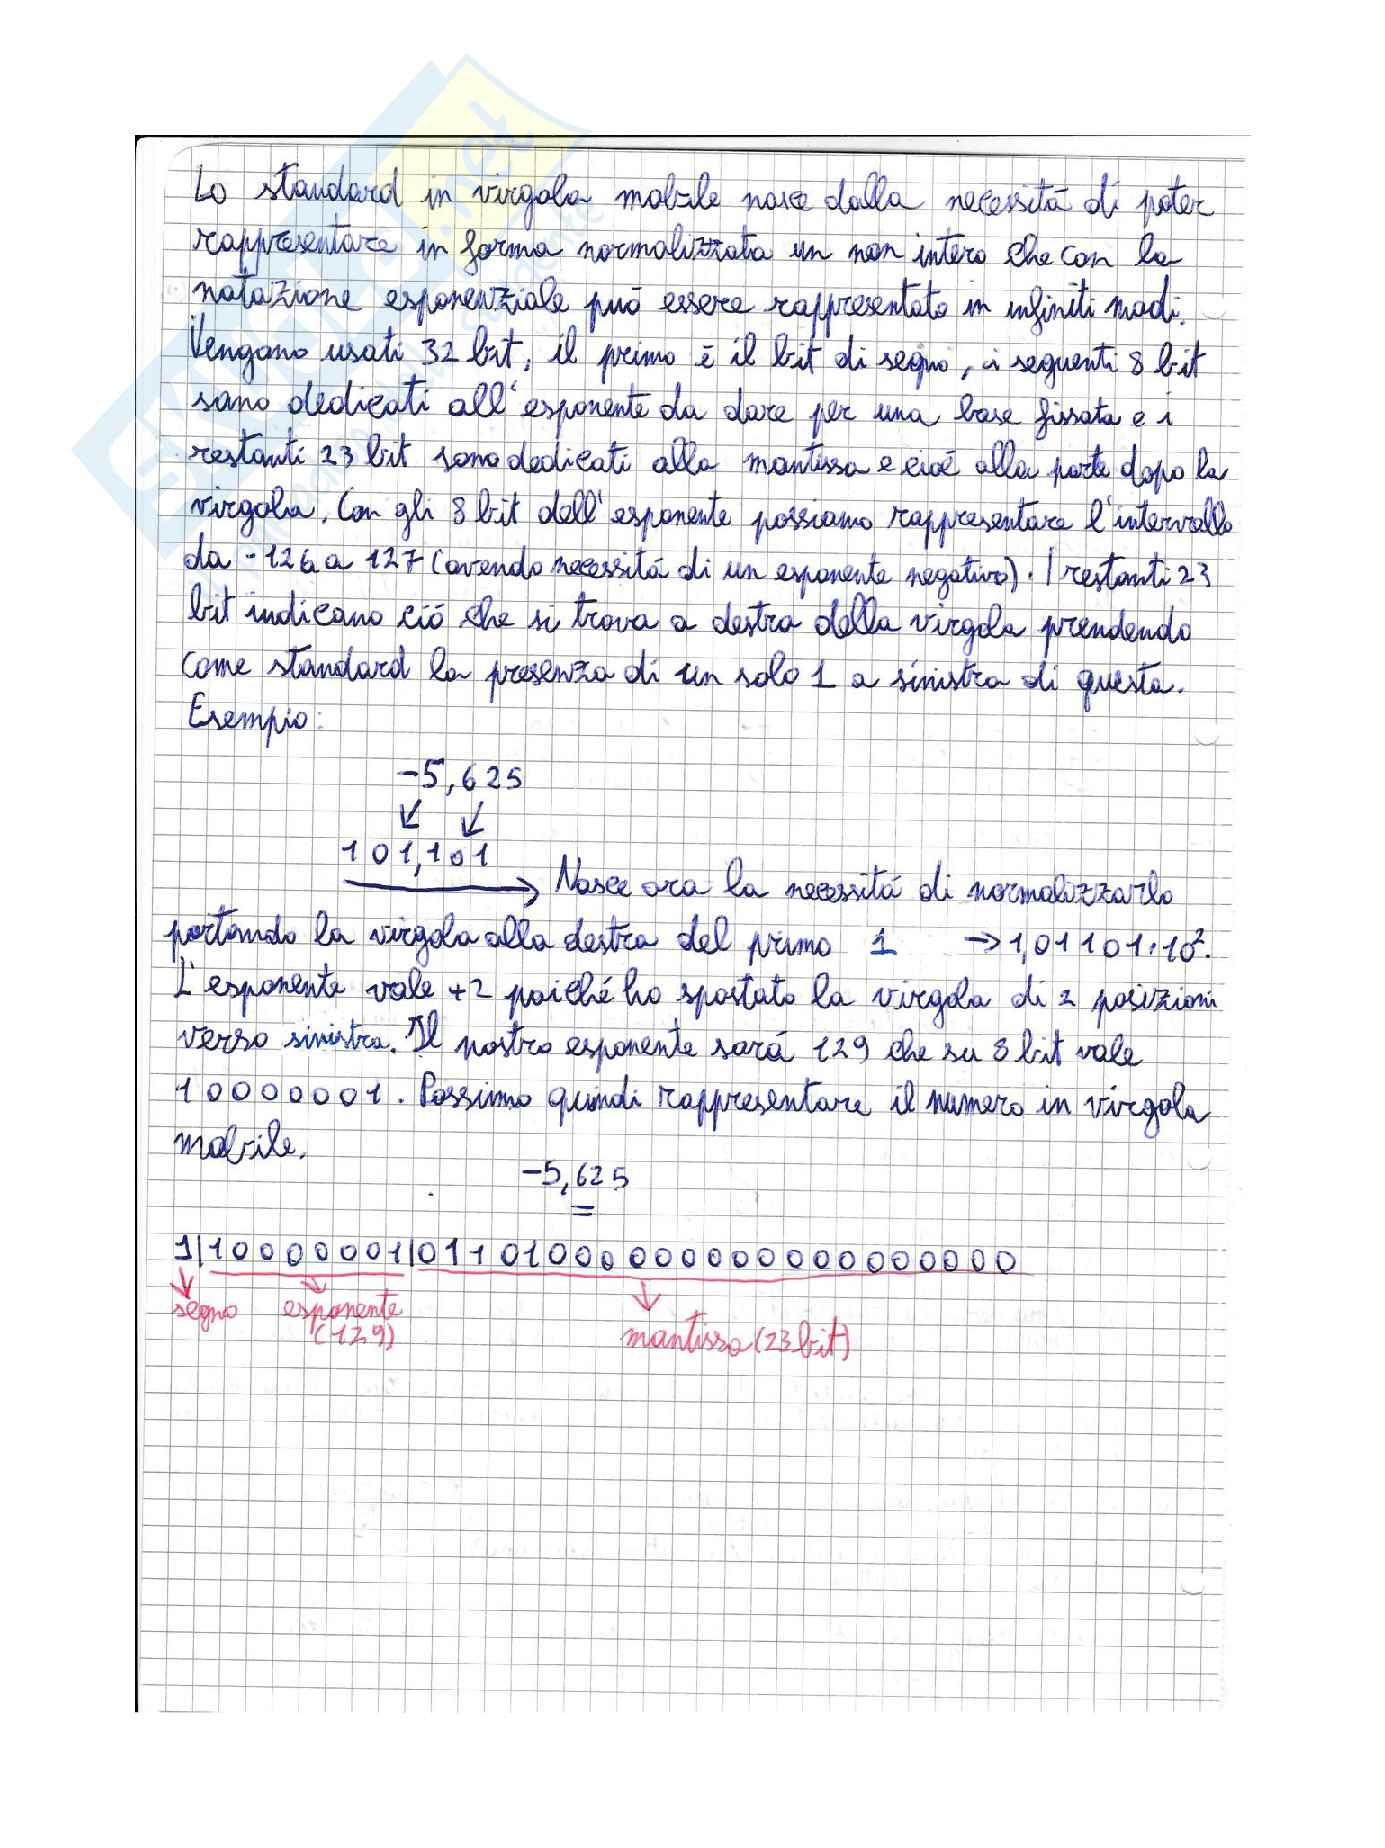 Lo standard in virgola mobile nasce dalla necessitá di poter
rappresentare in forma normalizzata un non intero che con la
notazione esponenziale puó essere rappresentato in infiniti modi.
Vengono usati 32 bit, il primo é il bit di segno, i seguenti 8 bit
sono dedicati all'esponente da dare per una base fissata e i
restanti 23 bit sono dedicati alla mantissa e cioé alla parte dopo la
virgola. Con gli 8 bit dell'esponente possiamo rappresentare l'intervallo
da -126 a 127 (avendo necessitá di un esponente negativo). I restanti 23
bit indicano ció che si trova a destra della virgola prendendo
come standard la presenza di un solo 1 a sinistra di questa.
Esempio:
-5,625
101,101
Nasce ora la necessitá di normalizzarlo
portando la virgola alla destra del primo 1 → 1,01101·10².
L'esponente vale +2 poiché ho spostato la virgola di 2 posizioni
verso sinistra. Il nostro esponente sará 129 che su 8 bit vale
10000001. Possimo quindi rappresentare il numero in virgola
mobile.
-5,625
=
1|10000001|01101000000000000000000
segno esponente
(129)
mantissa (23 bit)